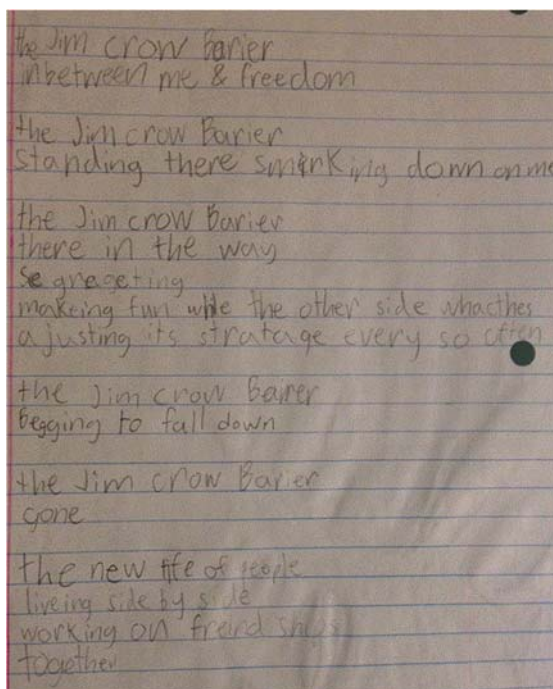 the Jim crow Barier
inbetween me & freedom
the Jim crow Barier
standing there smirking down on me
the Jim crow Barier
there in the way
Segregeting
makeing fun while the other side whacthes
ajusting its stratage every so often
the Jim crow Bairer
begging to fall down
the Jim crow Barier
gone
the new life of people
liveing side by side
working on freind ships
together